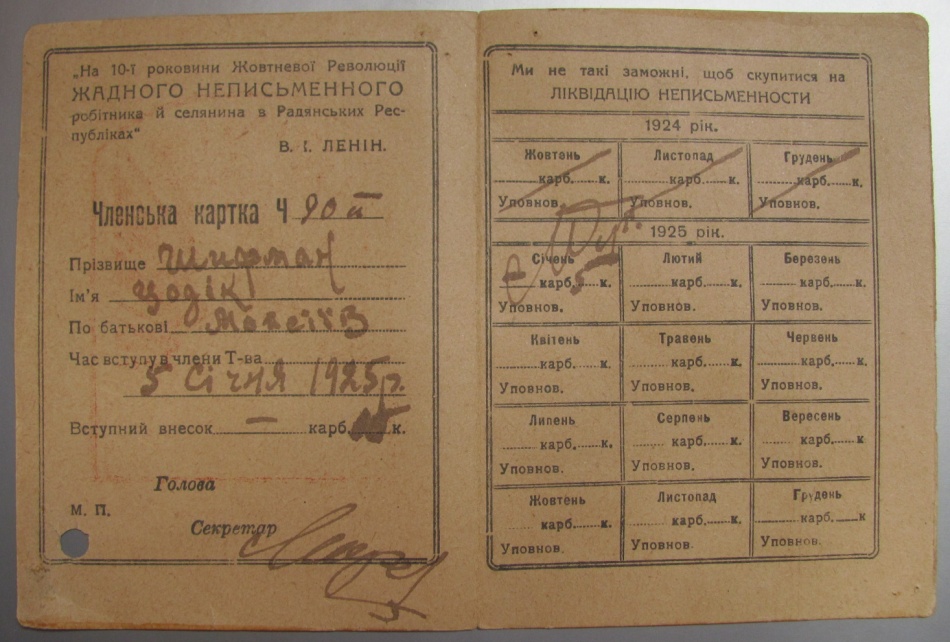 „На 10-ї роковини Жовтневої Революції
ЖАДНОГО НЕПИСЬМЕННОГО
робітника й селянина в Радянських Рес-
публіках“
В. І. ЛЕНІН.
Членська картка Ч 90
Прізвище Шифман
Ім'я Цодік
По батькові
Час вступу в члени Т-ва
5 Січня 1925 р.
Вступний внесок — карб. к.
Голова
М. П.
Секретар
Ми не такі заможні, щоб скупитися на
ЛІКВІДАЦІЮ НЕПИСЬМЕННОСТИ
1924 рік.
Жовтень Листопад Грудень
карб. к. карб. к. карб. к.
Уповнов. Уповнов. Уповнов.
1925 рік.
Січень Лютий Березень
карб. 5 к. карб. к. карб. к.
Уповнов. Уповнов. Уповнов.
Квітень Травень Червень
карб. к. карб. к. карб. к.
Уповнов. Уповнов. Уповнов.
Липень Серпень Вересень
карб. к. карб. к. карб. к
Уповнов. Уповнов. Уповнов.
Жовтень Листопад Грудень
карб. к. карб. к. карб. к
Уповнов. Уповнов. Уповнов.